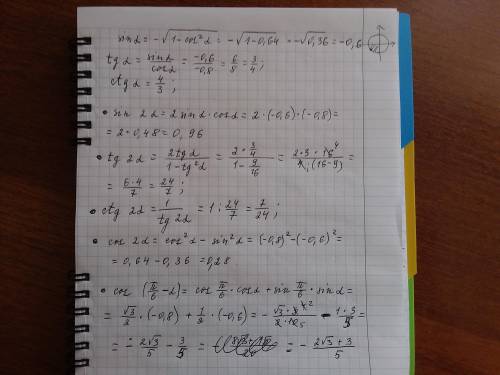 sin α = -√(1-cos²α) = -√(1-0,64) = -√0,36 = -0,6
tg α = sin α / cos α = -0,6 / -0,8 = 6/8 = 3/4 ;
ctg α = 4/3 ;
• sin 2α = 2 sin α · cos α = 2 · (-0,6) · (-0,8) =
= 2 · 0,48 = 0,96
• tg 2α = 2 tg α / (1 - tg²α) = (2 · 3/4) / (1 - 9/16) = =
= 6·4 / 7 = 24/7 ;
• ctg 2α = 1 / tg 2α = 1 : 24/7 = 7/24 ;
• cos 2α = cos²α - sin²α = (-0,8)² - (-0,6)² =
= 0,64 - 0,36 = 0,28
• cos (π/6 - α) = cos π/6 · cos α + sin π/6 · sin α =
= √3/2 · (-0,8) + 1/2 · (-0,6) = =
= - 2√3/5 - 3/5 = = - (2√3 + 3)/5